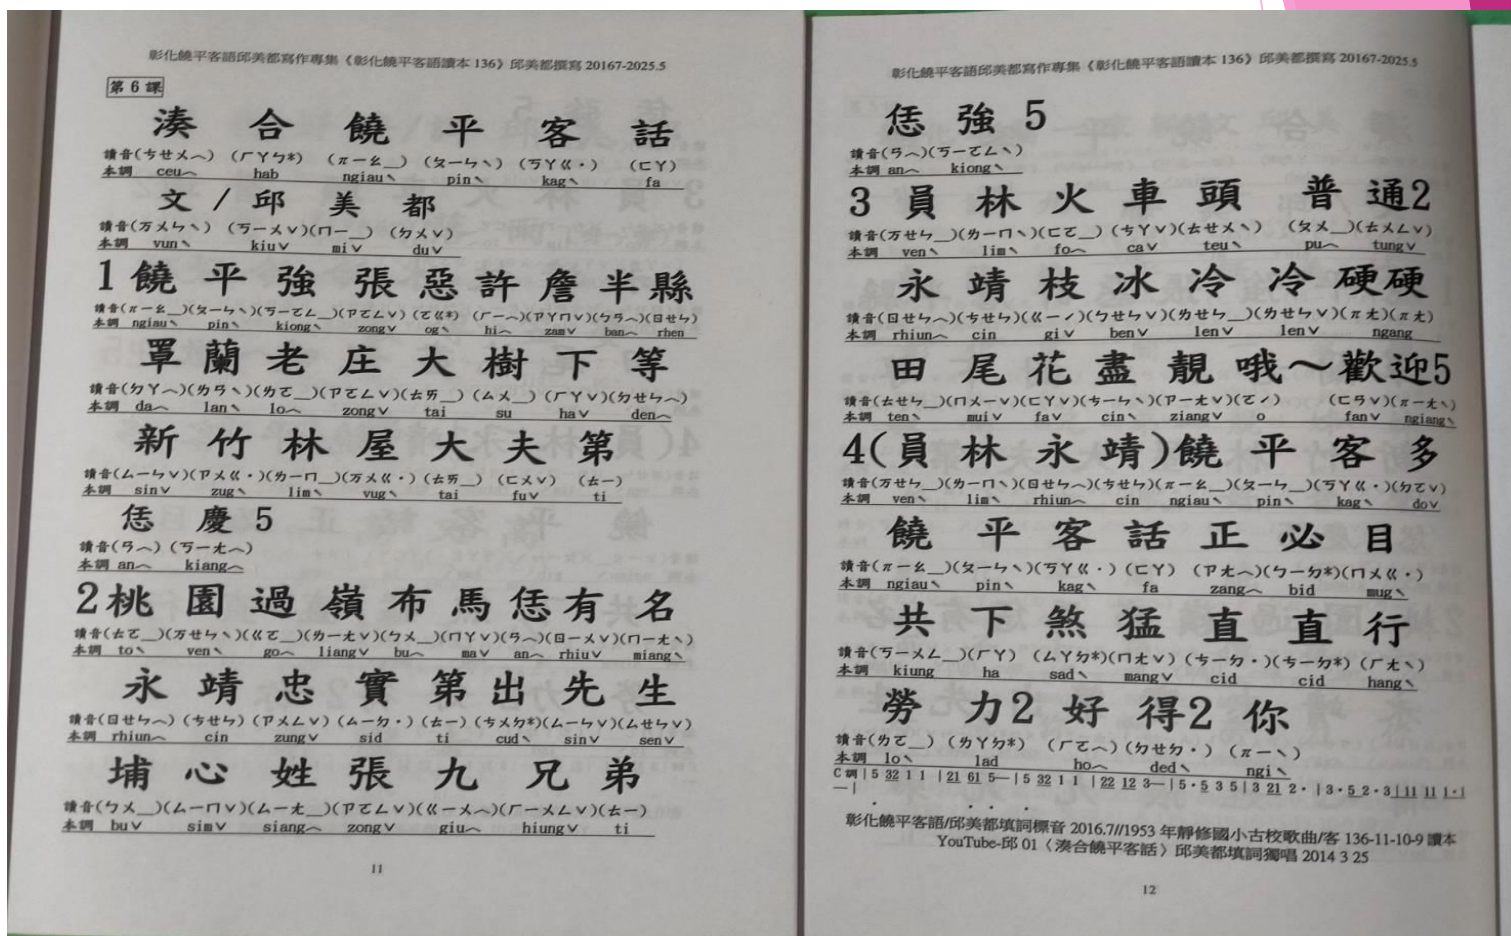 彰化饒平客語邱美都寫作專集《彰化饒平客語讀本 136》邱美都撰寫 20167-2025.5
第 6 課
湊 合 饒 平 客 話
讀音(ㄘㄝㄨへ) (ㄏㄚㄅ*) (ㄫㄧㄠ__) (ㄆㄧㄣヽ) (ㄎㄚㄍ·) (ㄈㄚ)
本調 ceuへ hab ngiauヽ pinヽ kagヽ fa
文 / 邱 美 都
讀音(万ㄨㄣヽ) (ㄎㄧㄨˇ)(ㄇㄧ__) (ㄉㄨˇ)
本調 vunヽ kiuˇ miˇ duˇ
1 饒 平 強 張 惡 許 詹 半 縣
讀音(ㄫㄧㄠ__)(ㄆㄧㄣヽ)(ㄎㄧㄛㄥ__)(ㄗㄛㄥˇ)(ㄛㄍ*) (ㄏㄧへ)(ㄗㄚㄇˇ)(ㄅㄢへ)(ㄖㄝㄣ)
本調 ngiauヽ pinヽ kiongヽ zongˇ ogヽ hiへ zamˇ banへ rhen
罩 蘭 老 庄 大 樹 下 等
讀音(ㄉㄚへ)(ㄌㄢヽ)(ㄌㄛ__)(ㄗㄛㄥˇ)(ㄊㄞ__) (ㄙㄨ__) (ㄏㄚˇ)(ㄉㄝㄣへ)
本調 daへ lanヽ loへ zongˇ tai su haˇ denへ
新 竹 林 屋 大 夫 第
讀音(ㄙㄧㄣˇ)(ㄗㄨㄍ·)(ㄌㄧㄇ__)(万ㄨㄍ·) (ㄊㄞ__) (ㄈㄨˇ) (ㄊㄧ)
本調 sinˇ zugヽ limヽ vugヽ tai fuˇ ti
恁 慶 5
讀音(ㄢへ) (ㄎㄧㄤへ)
本調 anへ kiangへ
2 桃 園 過 嶺 布 馬 恁 有 名
讀音(ㄊㄛ__)(万ㄝㄣヽ)(ㄍㄛ__)(ㄌㄧㄤˇ)(ㄅㄨ__)(ㄇㄚˇ)(ㄢへ)(ㄖㄧㄨˇ)(ㄇㄧㄤヽ)
本調 toヽ venヽ goへ liangˇ buへ maˇ anへ rhiuˇ miangヽ
永 靖 忠 實 第 出 先 生
讀音(ㄖㄝㄣへ) (ㄘㄝㄣ) (ㄗㄨㄥˇ) (ㄙㄧㄉ·) (ㄊㄧ) (ㄘㄨㄉ*)(ㄙㄧㄣˇ)(ㄙㄝㄣˇ)
本調 rhiunへ cin zungˇ sid ti cudヽ sinˇ senˇ
埔 心 姓 張 九 兄 弟
讀音(ㄅㄨ__)(ㄙㄧㄇˇ)(ㄙㄧㄤ__)(ㄗㄛㄥˇ)(ㄍㄧㄨへ)(ㄏㄧㄨㄥˇ)(ㄊㄧ)
本調 buˇ simˇ siangへ zongˇ giuへ hiungˇ ti
11
彰化饒平客語邱美都寫作專集《彰化饒平客語讀本 136》邱美都撰寫 20167-2025.5
恁 強 5
讀音(ㄢへ)(ㄎㄧㄛㄥヽ)
本調 anへ kiongヽ
3 員 林 火 車 頭 普 通2
讀音(万ㄝㄣ__)(ㄌㄧㄇヽ)(ㄈㄛ__) (ㄘㄚˇ)(ㄊㄝㄨヽ) (ㄆㄨ__)(ㄊㄨㄥˇ)
本調 venヽ limヽ foへ caˇ teuヽ puへ tungˇ
永 靖 枝 冰 冷 冷 硬硬
讀音(ㄖㄝㄣへ)(ㄘㄝㄣ)(ㄍㄧˊ)(ㄅㄝㄣˇ)(ㄌㄝㄣ__)(ㄌㄝㄣˇ)(ㄫㄤ)(ㄫㄤ)
本調 rhiunへ cin giˇ benˇ lenˇ lenˇ ngang
田 尾 花 盡 靚 哦～歡迎5
讀音(ㄊㄝㄣ__)(ㄇㄨㄧˇ)(ㄈㄚˇ)(ㄘㄧㄣヽ)(ㄗㄧㄤˇ)(ㄛˊ) (ㄈㄢˇ)(ㄫㄧㄤヽ)
本調 tenヽ muiˇ faˇ cinヽ ziangˇ o fanˇ ngiangヽ
4(員 林 永 靖)饒 平 客 多
讀音(万ㄝㄣ__)(ㄌㄧㄇヽ)(ㄖㄝㄣへ)(ㄘㄝㄣ)(ㄫㄧㄠ__)(ㄆㄧㄣ__)(ㄎㄚㄍ·)(ㄉㄛˇ)
本調 venヽ limヽ rhiunへ cin ngiauヽ pinヽ kagヽ doˇ
饒 平 客 話 正 必 目
讀音(ㄫㄧㄠ__)(ㄆㄧㄣヽ)(ㄎㄚㄍ·) (ㄈㄚ) (ㄗㄤへ)(ㄅㄧㄉ*)(ㄇㄨㄍ·)
本調 ngiauヽ pinヽ kagヽ fa zangへ bid mugヽ
共 下 煞 猛 直 直 行
讀音(ㄎㄧㄨㄥ__)(ㄏㄚ) (ㄙㄚㄉ*)(ㄇㄤˇ) (ㄘㄧㄉ·)(ㄘㄧㄉ*) (ㄏㄤヽ)
本調 kiung ha sadヽ mangˇ cid cid hangヽ
勞 力2 好 得2 你
讀音(ㄌㄛ__) (ㄌㄚㄉ*) (ㄏㄛへ)(ㄉㄝㄉ·) (ㄫㄧヽ)
本調 loヽ lad hoへ dedヽ ngiヽ
C 調 | 5 32 1 1 | 21 61 5— | 5 32 1 1 | 22 12 3— | 5 · 5 3 5 | 3 21 2 · | 3 · 5 2 · 3 | 11 11 1 · |
— |
彰化饒平客語/邱美都填詞標音 2016.7//1953 年靜修國小古校歌曲/客 136-11-10-9 讀本
YouTube-邱 01〈湊合饒平客話〉邱美都填詞獨唱 2014 3 25
12